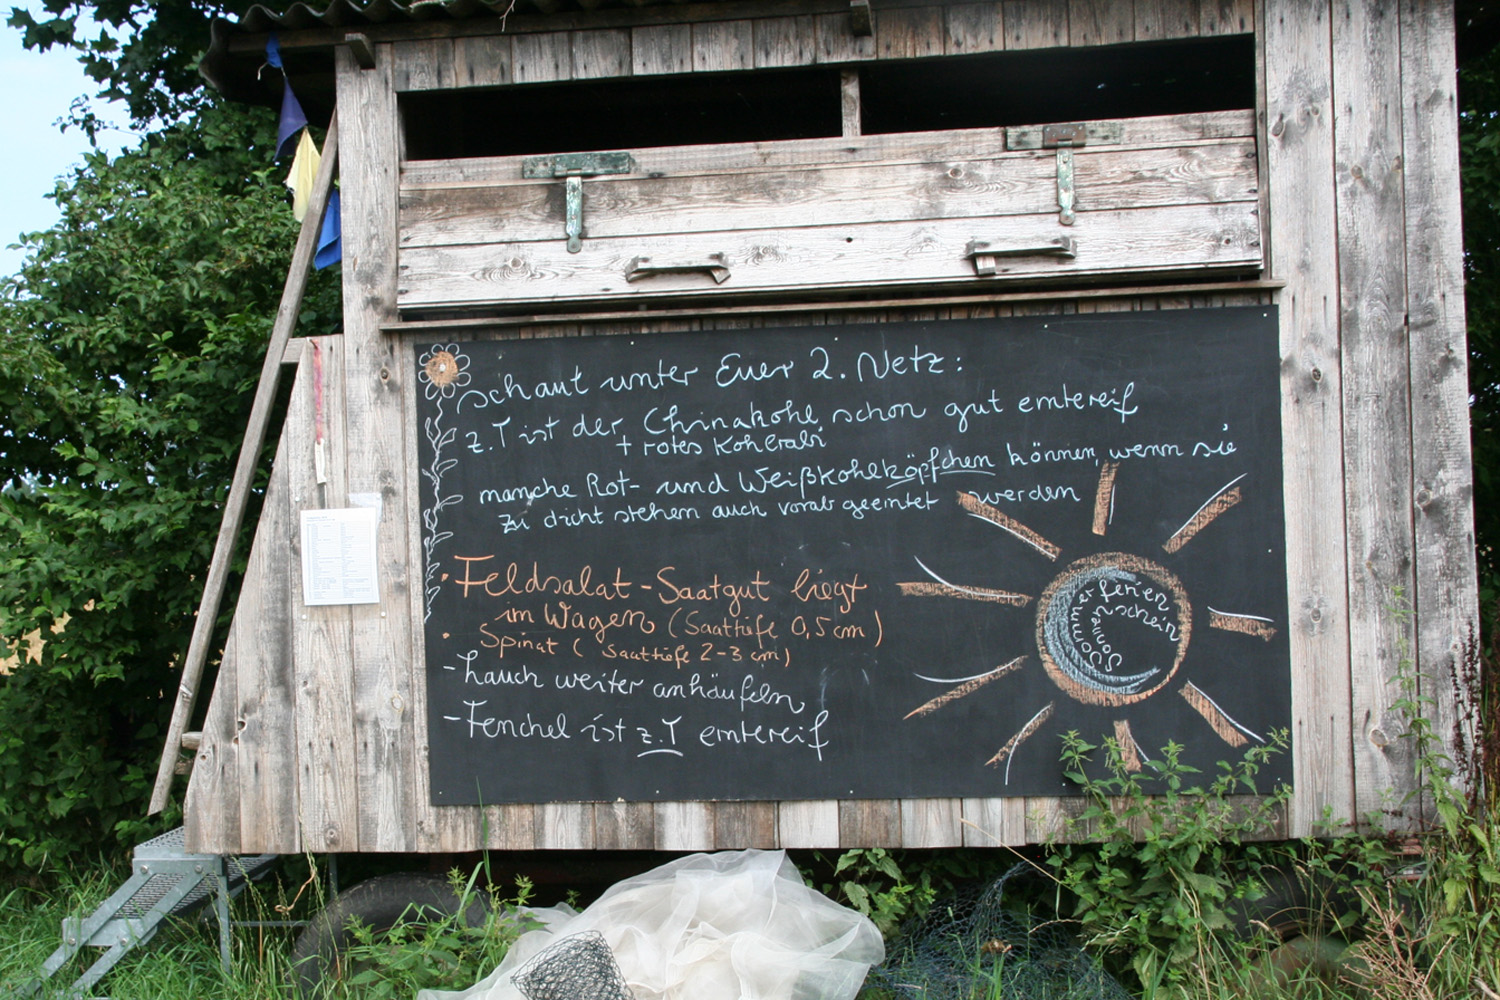 schaut unter Euer 2. Netz:
z.T ist der Chinakohl schon gut erntereif
+ rotes Kohlrabi
manche Rot- und Weißkohlköpfchen können, wenn sie
zu dicht stehen auch vorab geerntet werden
· Feldsalat - Saatgut liegt
im Wagen (Saattiefe 0,5 cm)
· Spinat ( Saattiefe 2-3 cm)
- Lauch weiter anhäufeln
- Fenchel ist z.T erntereif
Sommerferien
Sonnenschein